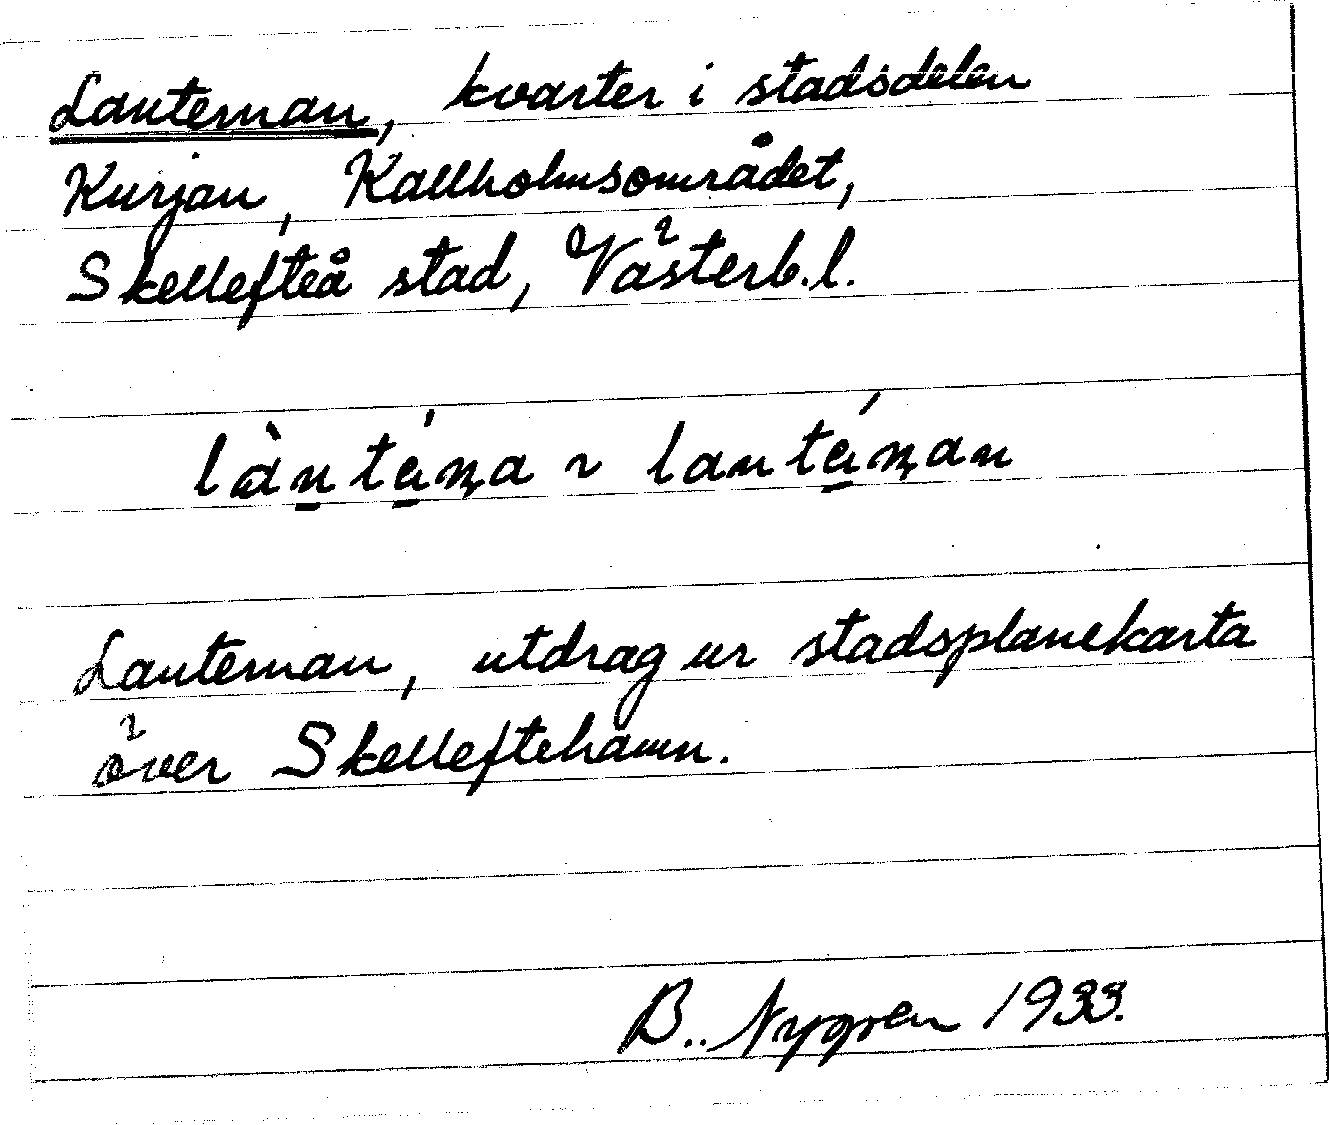 Lanternan, kvarter i stadsdelen
Kurjan, Kallholmsområdet,
Skellefteå stad, Västerb.l.
làntá̱ɳa ~ lantá̱ɳan
Lanternan, utdrag ur stadsplanekarta
över Skelleftehamn.
B. Nygren 1933.